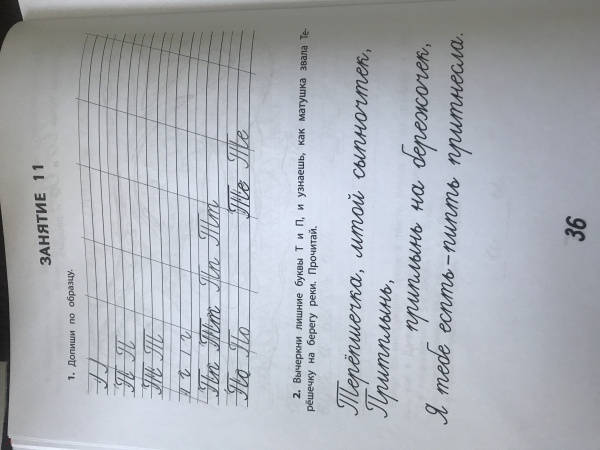 ЗАНЯТИЕ 11
1. Допиши по образцу.
П П
Т Т
г г г
Пп Тт Пп Тт
По По Те Те
2. Вычеркни лишние буквы Т и П, и узнаешь, как матушка звала Те-
рёшечку на берегу реки. Прочитай.
Терёпшечка, мтой сыпночтек,
Притплынь,
приплынь на бережочек,
Я тебе епть-пипть притнесла.
36